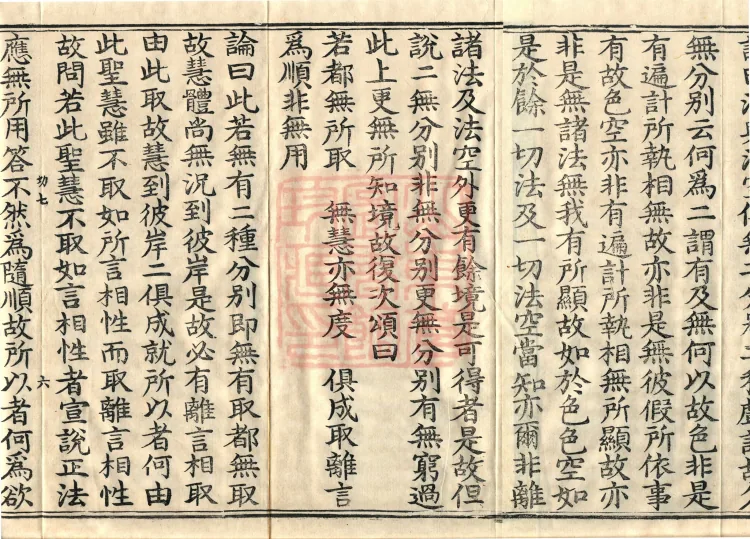 無分別云何爲二謂有及無何以故色非是
有遍計所執相無故亦非是無彼假所依事
有故色空亦非有遍計所執相無所顯故亦
非是無諸法無我有所顯故如於色色空如
是於餘一切法及一切法空當知亦爾非離
諸法及法空外更有餘境是可得者是故但
說二無分別非無分別更無分別有無窮過
此上更無所知境故復次頌曰
若都無所取 無慧亦無度 俱成取離言
爲順非無用
論曰此若無有二種分別即無有取都無取
故慧體尚無況到彼岸是故必有離言相取
由此取故慧到彼岸二俱成就所以者何由
此聖慧雖不取如所言相性而取離言相性
故問若此聖慧不取如言相性者宣說正法
功七 六
應無所用答不然爲隨順故所以者何爲欲